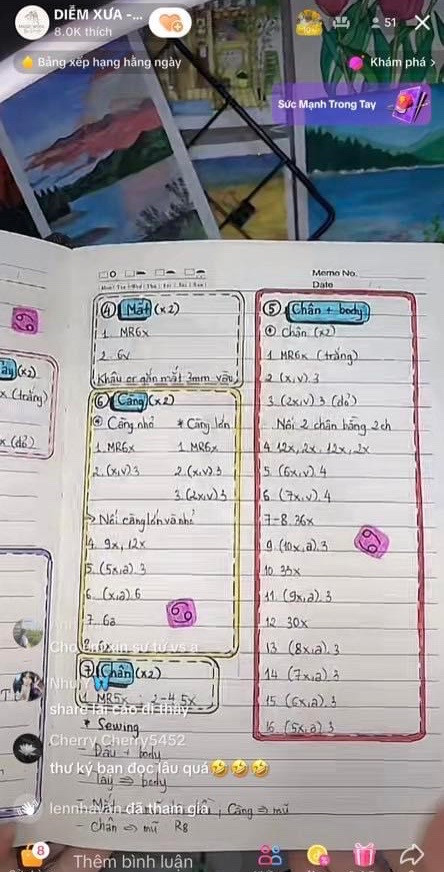 DIỄM XƯA -...
8.0K thích
51
Bảng xếp hạng hằng ngày
Khám phá >
Sức Mạnh Trong Tay
Memo No.
Date
Mon Tue Wed Thu Fri Sat Sun
④ Mắt (x2)
1. MR6x
2. 6v
Khâu or gắn mắt 3mm vào
(x2)
x (trắng)
x (đỏ)
⑥ Càng (x2)
Càng nhỏ * Càng lớn
1. MR6x 1. MR6x
2. (x,v)3 2. (x,v).3
3. (2x,v)3
> Nối càng lớn và nhỏ
4. 9x, 12x
5. (5x,a).3
6. (x,a).6
7. 6a
8. 6x
⑦ Chân (x2)
1 MR5x 2-4 5x
* Sewing
- Đầu + body
- Tay => body
, Càng => mũ
- Chân => mũ R8
⑤ Chân + body
Chân (x2)
1 MR6x (trắng)
2 (x,v).3
3. (2x,v)3 (đỏ)
- Nối 2 chân bằng 2ch
4 12x, 2x, 12x, 2x
5. (6x,v).4
6. (7x,v).4
7-8. 36x
9. (10x,a).3
10. 33x
11. (9x,a).3
12. 30x
13 (8x,a).3
14 (7x,a).3
15 (6x,a).3
16 (5x,a).3
Cho em xin sư tử vs ạ
Như Ý
share lại cáo đi thầy
Cherry Cherry5452
thư ký bạn đọc lâu quá🤣🤣🤣
lennhavan đã tham gia
8
Thêm bình luận